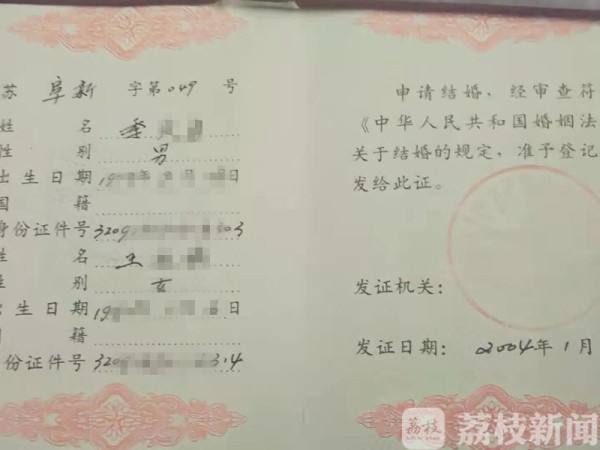 苏 阜新 字第049号
姓 名 季
性 别 男
出生日期 19 日
国 籍
身份证件号 3209 303
姓 名 王
性 别 女
出生日期 19 日
国 籍
身份证件号 3209 314
申请结婚，经审查符
《中华人民共和国婚姻法
关于结婚的规定，准予登记
发给此证。
发证机关：
发证日期：2004年1月
荔枝
荔枝新闻